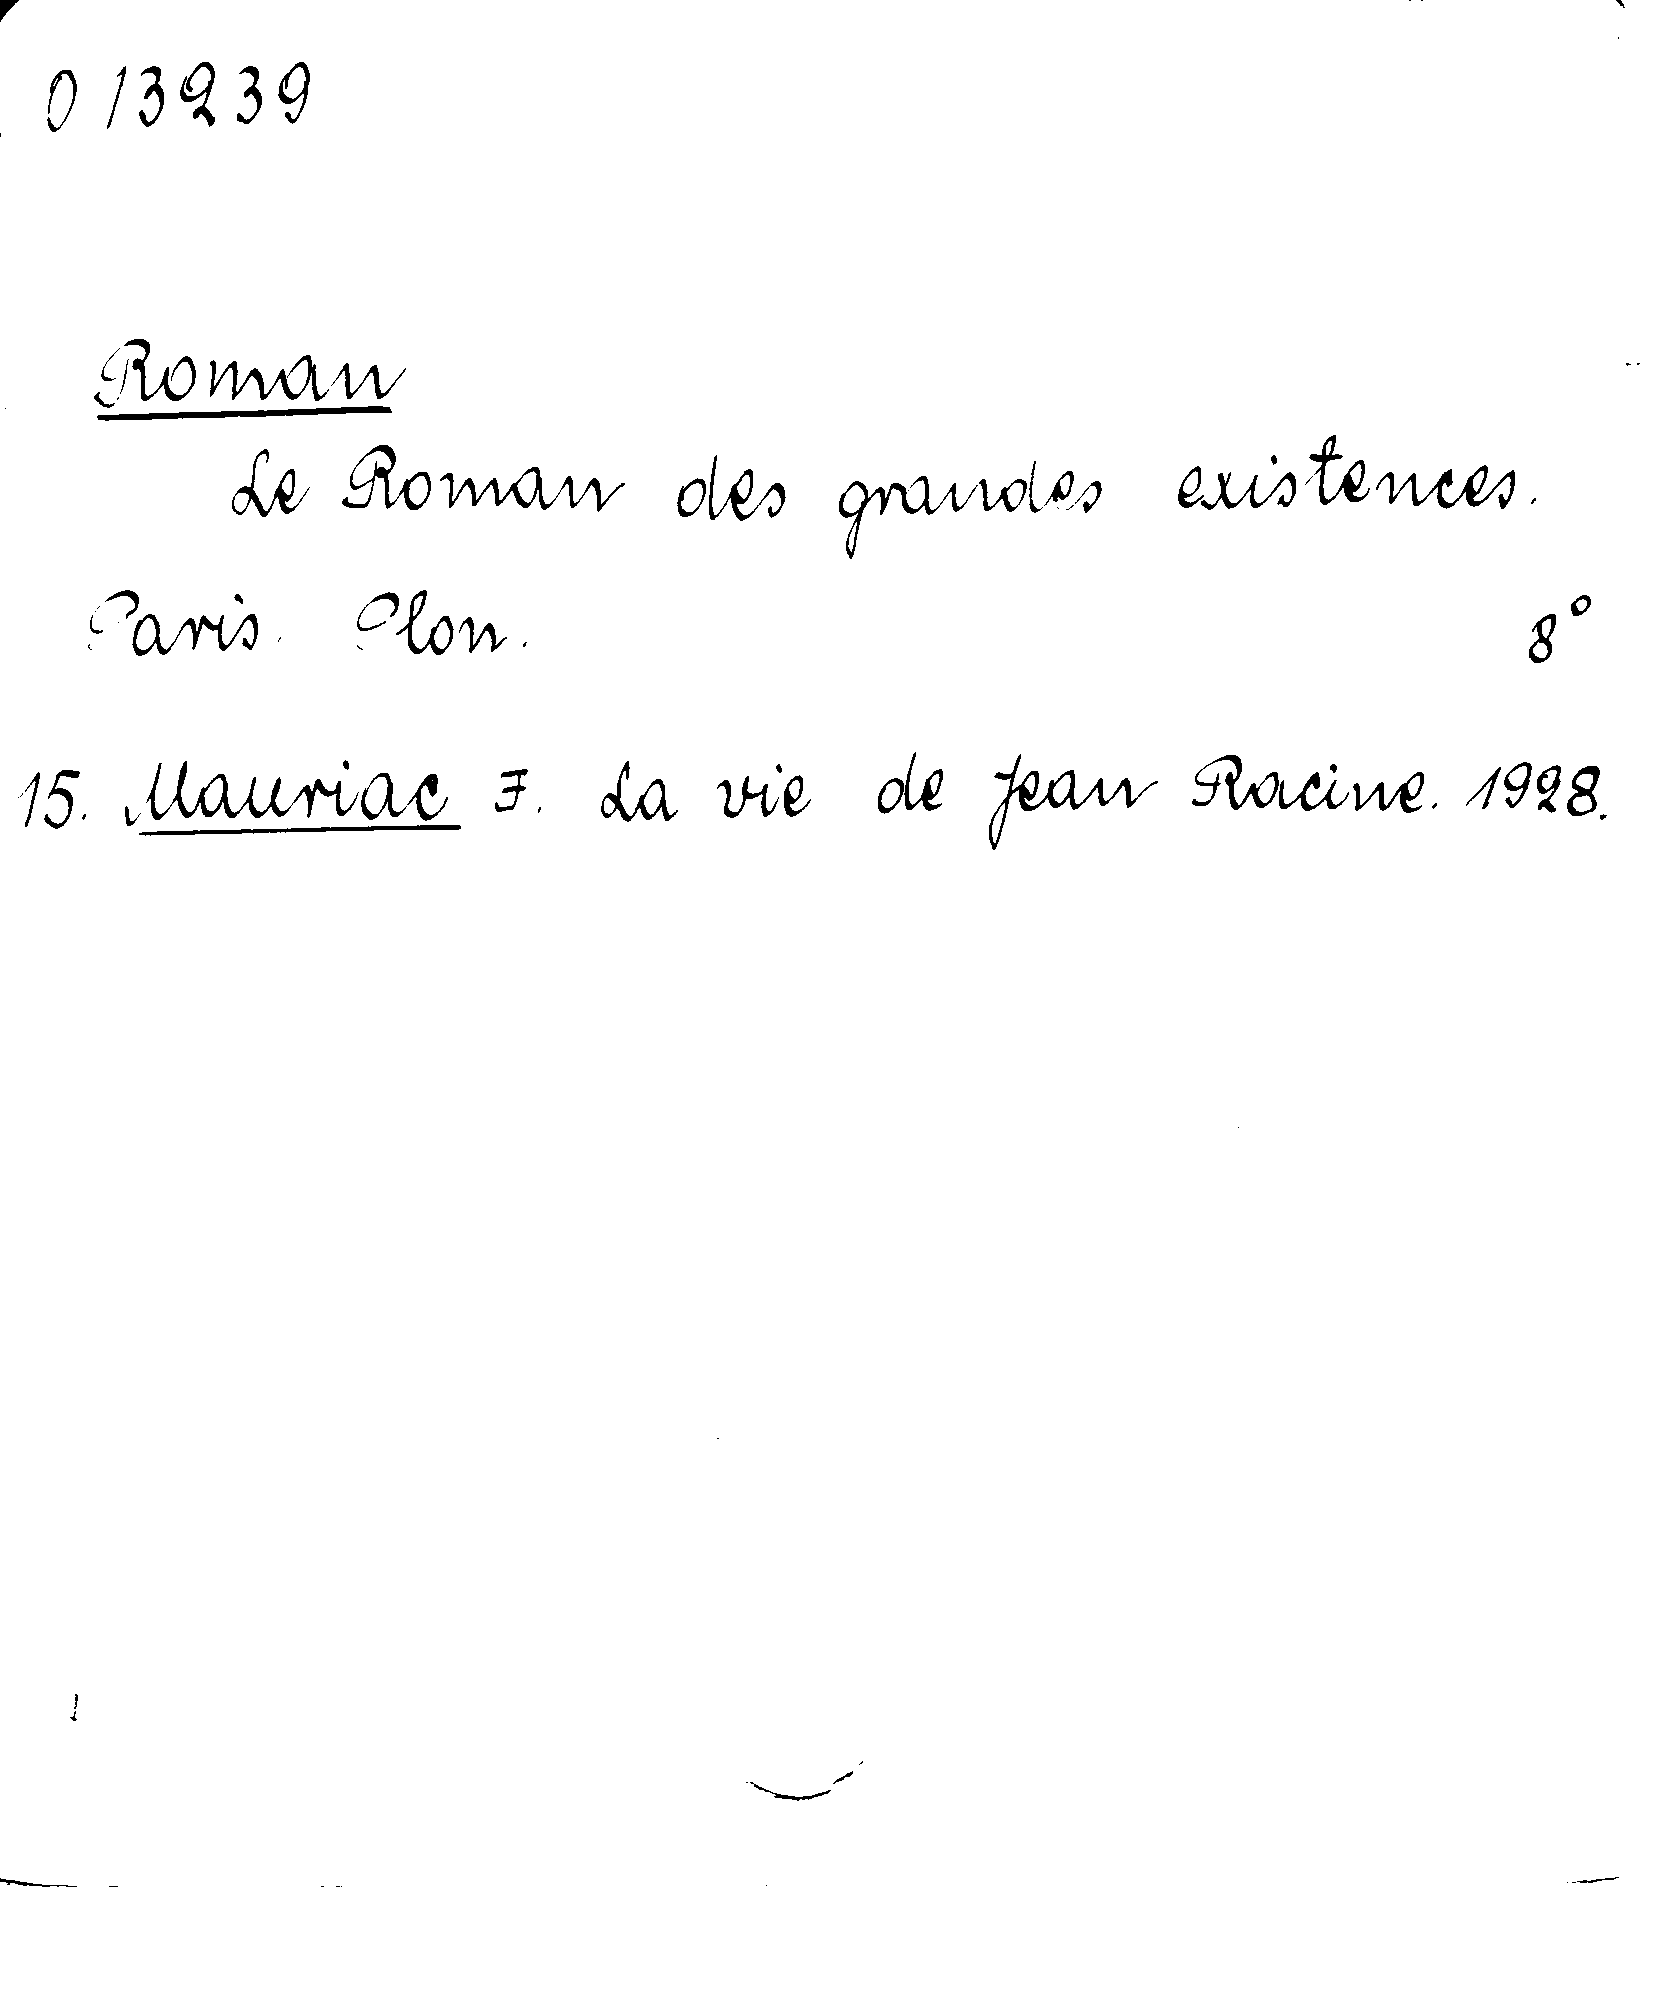 013239
Roman
Le Roman des grandes existences.
Paris. Plon. 8°
15. Mauriac F. La vie de Jean Racine. 1928.